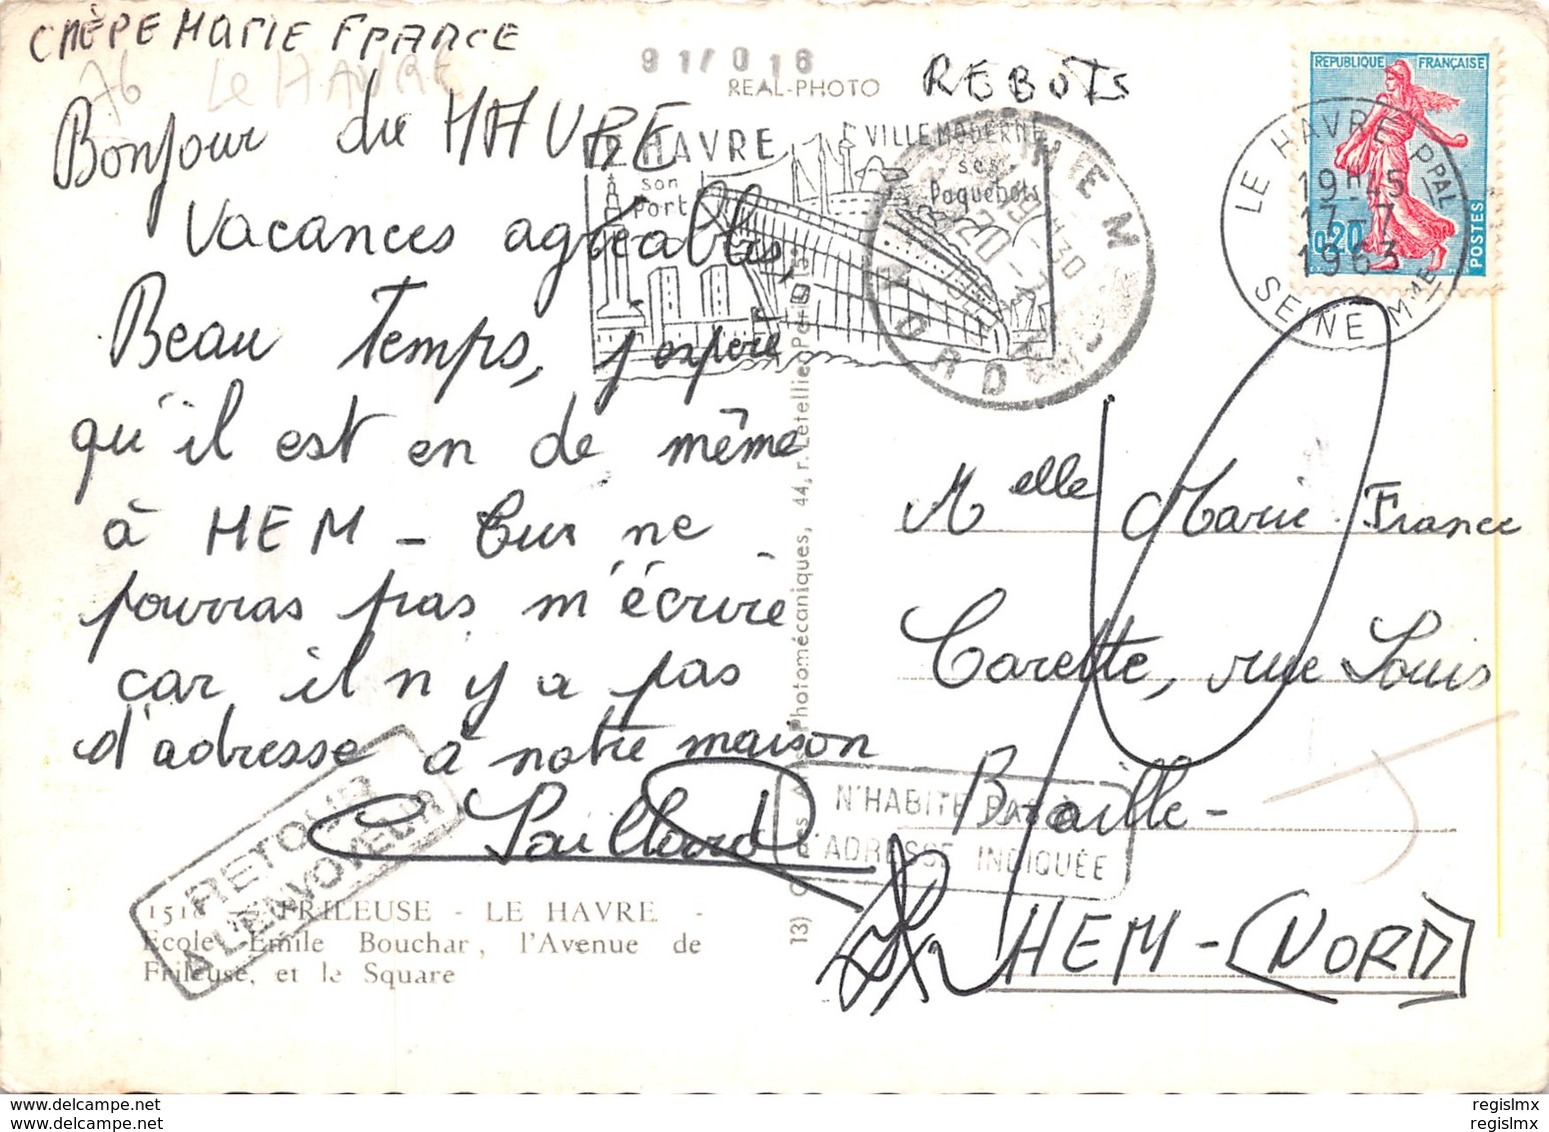 CRÈPE MARIE FRANCE
76 Le HAVRE
91/016
REAL-PHOTO
REBUTS
Bonjour du HAVRE
Vacances agréables,
Beau Temps, j'espère
qu'il est en de même
à HEM - Tu ne
pourras pas m'écrire
car il n'y a pas
d'adresse à notre maison
Paillard
RETOUR
A L'ENVOYEUR
FRILEUSE - LE HAVRE -
Ecole Emile Bouchar, l'Avenue de
Frileuse, et le Square
Photomécaniques, 44, r. Letellier, Paris
LE HAVRE
son
Port
VILLE MODERNE
ses
Paquebots
HEM
NORD
REPUBLIQUE FRANÇAISE
0,20
POSTES
LE HAVRE PPAL
19H45
17-7
1963
SEINE MME
Melle Marie France
Carette, rue Louis
Braille -
HEM - (NORD)
N'HABITE PAS À
L'ADRESSE INDIQUÉE
regislmx
regislmx
https://www.delcampe.net
https://www.delcampe.net